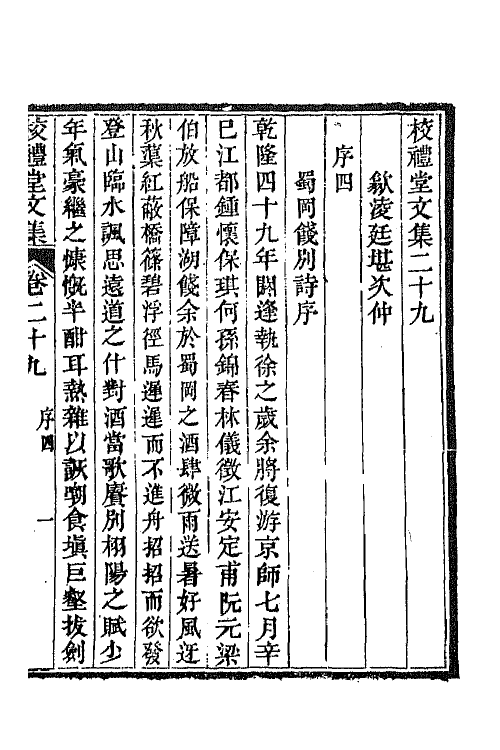 校禮堂文集二十九
歙凌廷堪次仲
序四
蜀岡餞別詩序
乾隆四十九年閼逢執徐之歲余將復游京師七月辛
巳江都鍾懷保琪何孫錦春林儀徵江安定甫阮元梁
伯放船保障湖餞余於蜀岡之酒肆微雨送暑好風迓
秋葉紅蔽橋篠碧浮徑馬遲遲而不進舟招招而欲發
登山臨水諷思遠道之什對酒當歌賡別栩陽之賦少
年氣豪繼之慷慨半酣耳熱雜以詼嘲食塡巨壑拔劍
校禮堂文集 卷二十九 序四 一